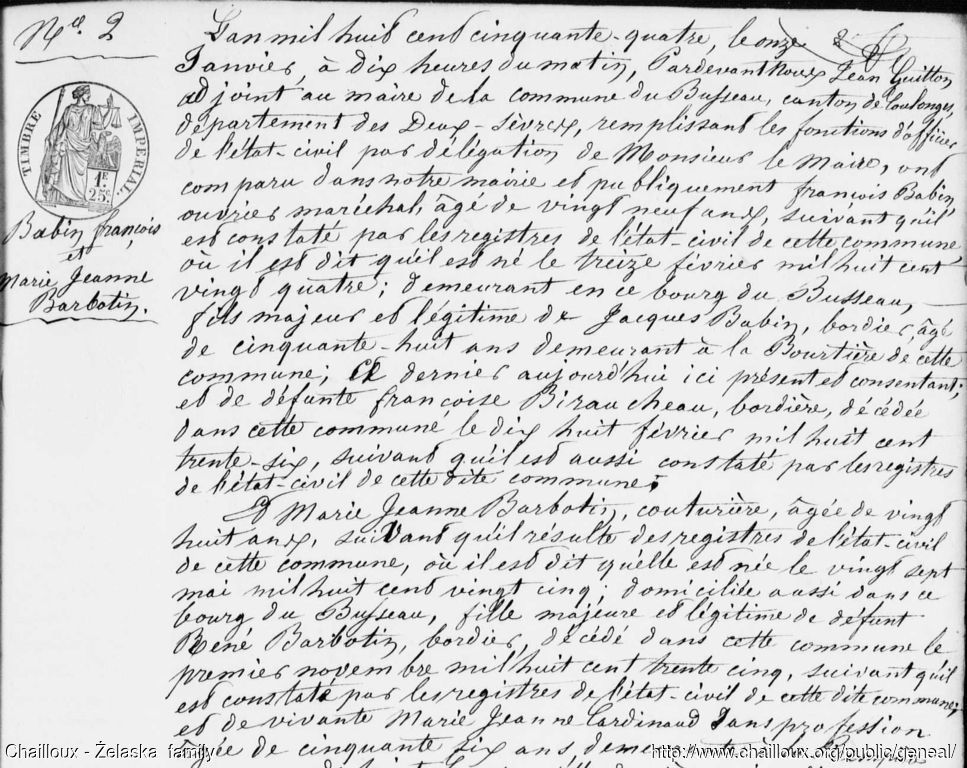 N° 2
TIMBRE IMPERIAL
1F
25c
Babin françois
et
Marie Jeanne
Barbotin.
L'an mil huit cent cinquante-quatre, le onze
Janvier, à dix heures du matin, Pardevant Nous Jean Guitton
adjoint au maire de la commune du Busseau, canton de Coulonges,
département des Deux-Sèvres, remplissant les fonctions d'officier
de l'état-civil par délégation de Monsieur le Maire, ont
comparu dans notre mairie et publiquement françois Babin,
ouvrier maréchal, âgé de vingt neuf ans, suivant qu'il
est constaté par les registres de l'état-civil de cette commune
où il est dit qu'il est né le treize février mil huit cent
vingt quatre; demeurant en ce bourg du Busseau,
fils majeur et légitime de Jacques Babin, bordier, âgé
de cinquante-huit ans demeurant à la Bourtière de cette
commune; Ce dernier aujourd'hui ici présent et consentant;
et de défunte françoise Biraucheau, bordière, décédée
dans cette commune le dix huit février mil huit cent
trente-six, suivant qu'il est aussi constaté par les registres
de l'état-civil de cette dite commune;
Et Marie Jeanne Barbotin, couturière, âgée de vingt
huit ans, suivant qu'il résulte des registres de l'état-civil
de cette commune, où il est dit qu'elle est née le vingt sept
mai mil huit cent vingt cinq; domiciliée aussi dans ce
bourg du Busseau, fille majeure et légitime de défunt
René Barbotin, bordier, décédé dans cette commune le
premier novembre mil huit cent trente cinq, suivant qu'il
est constaté par les registres de l'état-civil de cette dite commune;
et de vivante Marie Jeanne Cardinaud sans profession
âgée de cinquante six ans,
Chailloux - Żelaska family
http://www.chailloux.org/public/geneal/